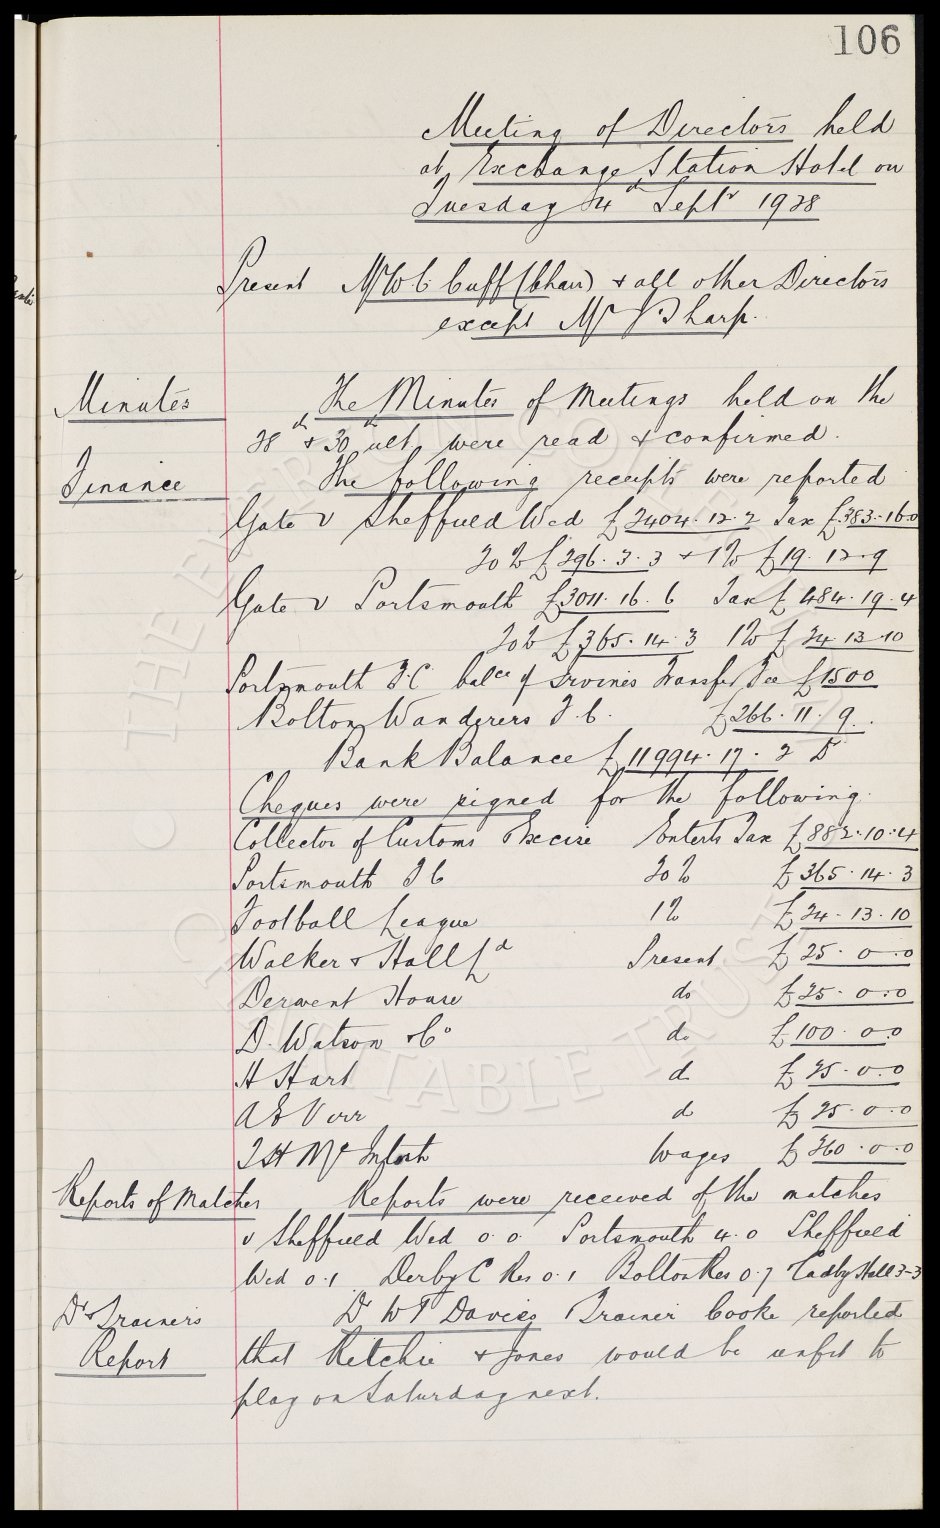 106
Meeting of Directors held
at Exchange Station Hotel on
Tuesday 4th Septr 1928
Present Mr W C Cuff (Chair) & all other Directors
except Mr Sharp.
Minutes The Minutes of Meetings held on the
28th & 30th ult were read & confirmed.
Finance The following receipts were reported
Gate v Sheffield Wed £2404.12.2 Tax £383.16.0
20% £296.3.3 & 1% £19.12.9
Gate v Portsmouth £3011.16.6 Tax £484.19.4
20% £365.14.3 1% £24.13.10
Portsmouth F.C balce of Irvines Transfer Fee £1500
Bolton Wanderers F.C. £266.11.9.
Bank Balance £11994.17.2 Dr
Cheques were signed for the following.
Collector of Customs & Excise Enterts Tax £882.10.4
Portsmouth F C 20% £365.14.3
Football League 1% £24.13.10
Walker & Hall Ld Present £25.0.0
Derwent House do £25.0.0
D. Watson & Co do £100.0.0
H Hart d £25.0.0
A E Virr d £25.0.0
T H McIntosh Wages £360.0.0
Reports of Matches Reports were received of the matches
v Sheffield Wed 0.0. Portsmouth 4.0 Sheffield
Wed 0.1 Derby C Res 0.1 Bolton Res 0.7 Cadby Hall 3-3
Dr & Trainers Dr W T Davies Trainer Cooke reported
Report that Ritchie & Jones would be unfit to
play on Saturday next.
© THE EVERTON COLLECTION CHARITABLE TRUST